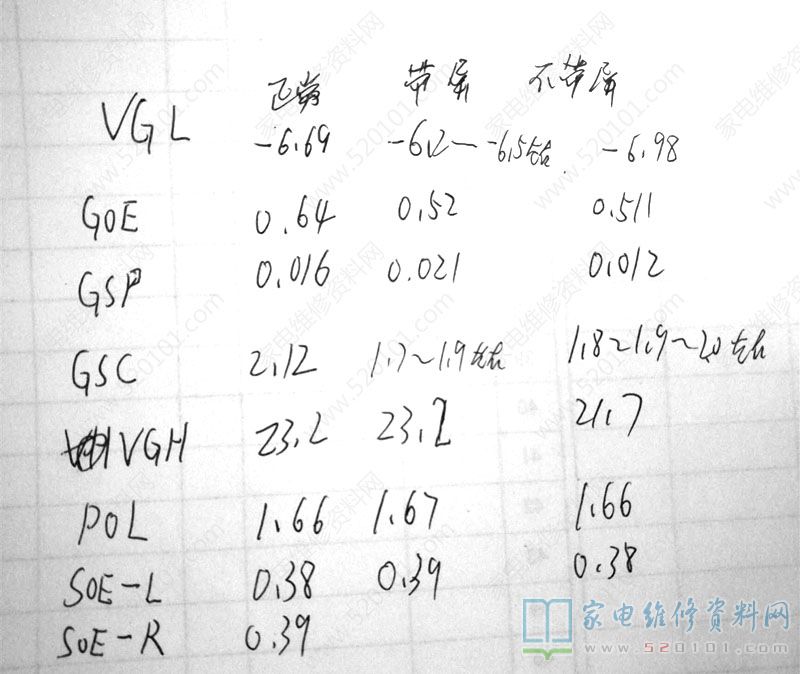 正常 带屏 不带屏
VGL -6.69 -6.2～-6.5左右 -6.98
GOE 0.64 0.52 0.511
GSP 0.016 0.021 0.012
GSC 2.12 1.7～1.9左右 1.8～1.9～2.0左右
VGH 23.2 23.2 21.7
POL 1.66 1.67 1.66
SOE-L 0.38 0.39 0.38
SOE-R 0.39
家电维修资料网
www.520101.com